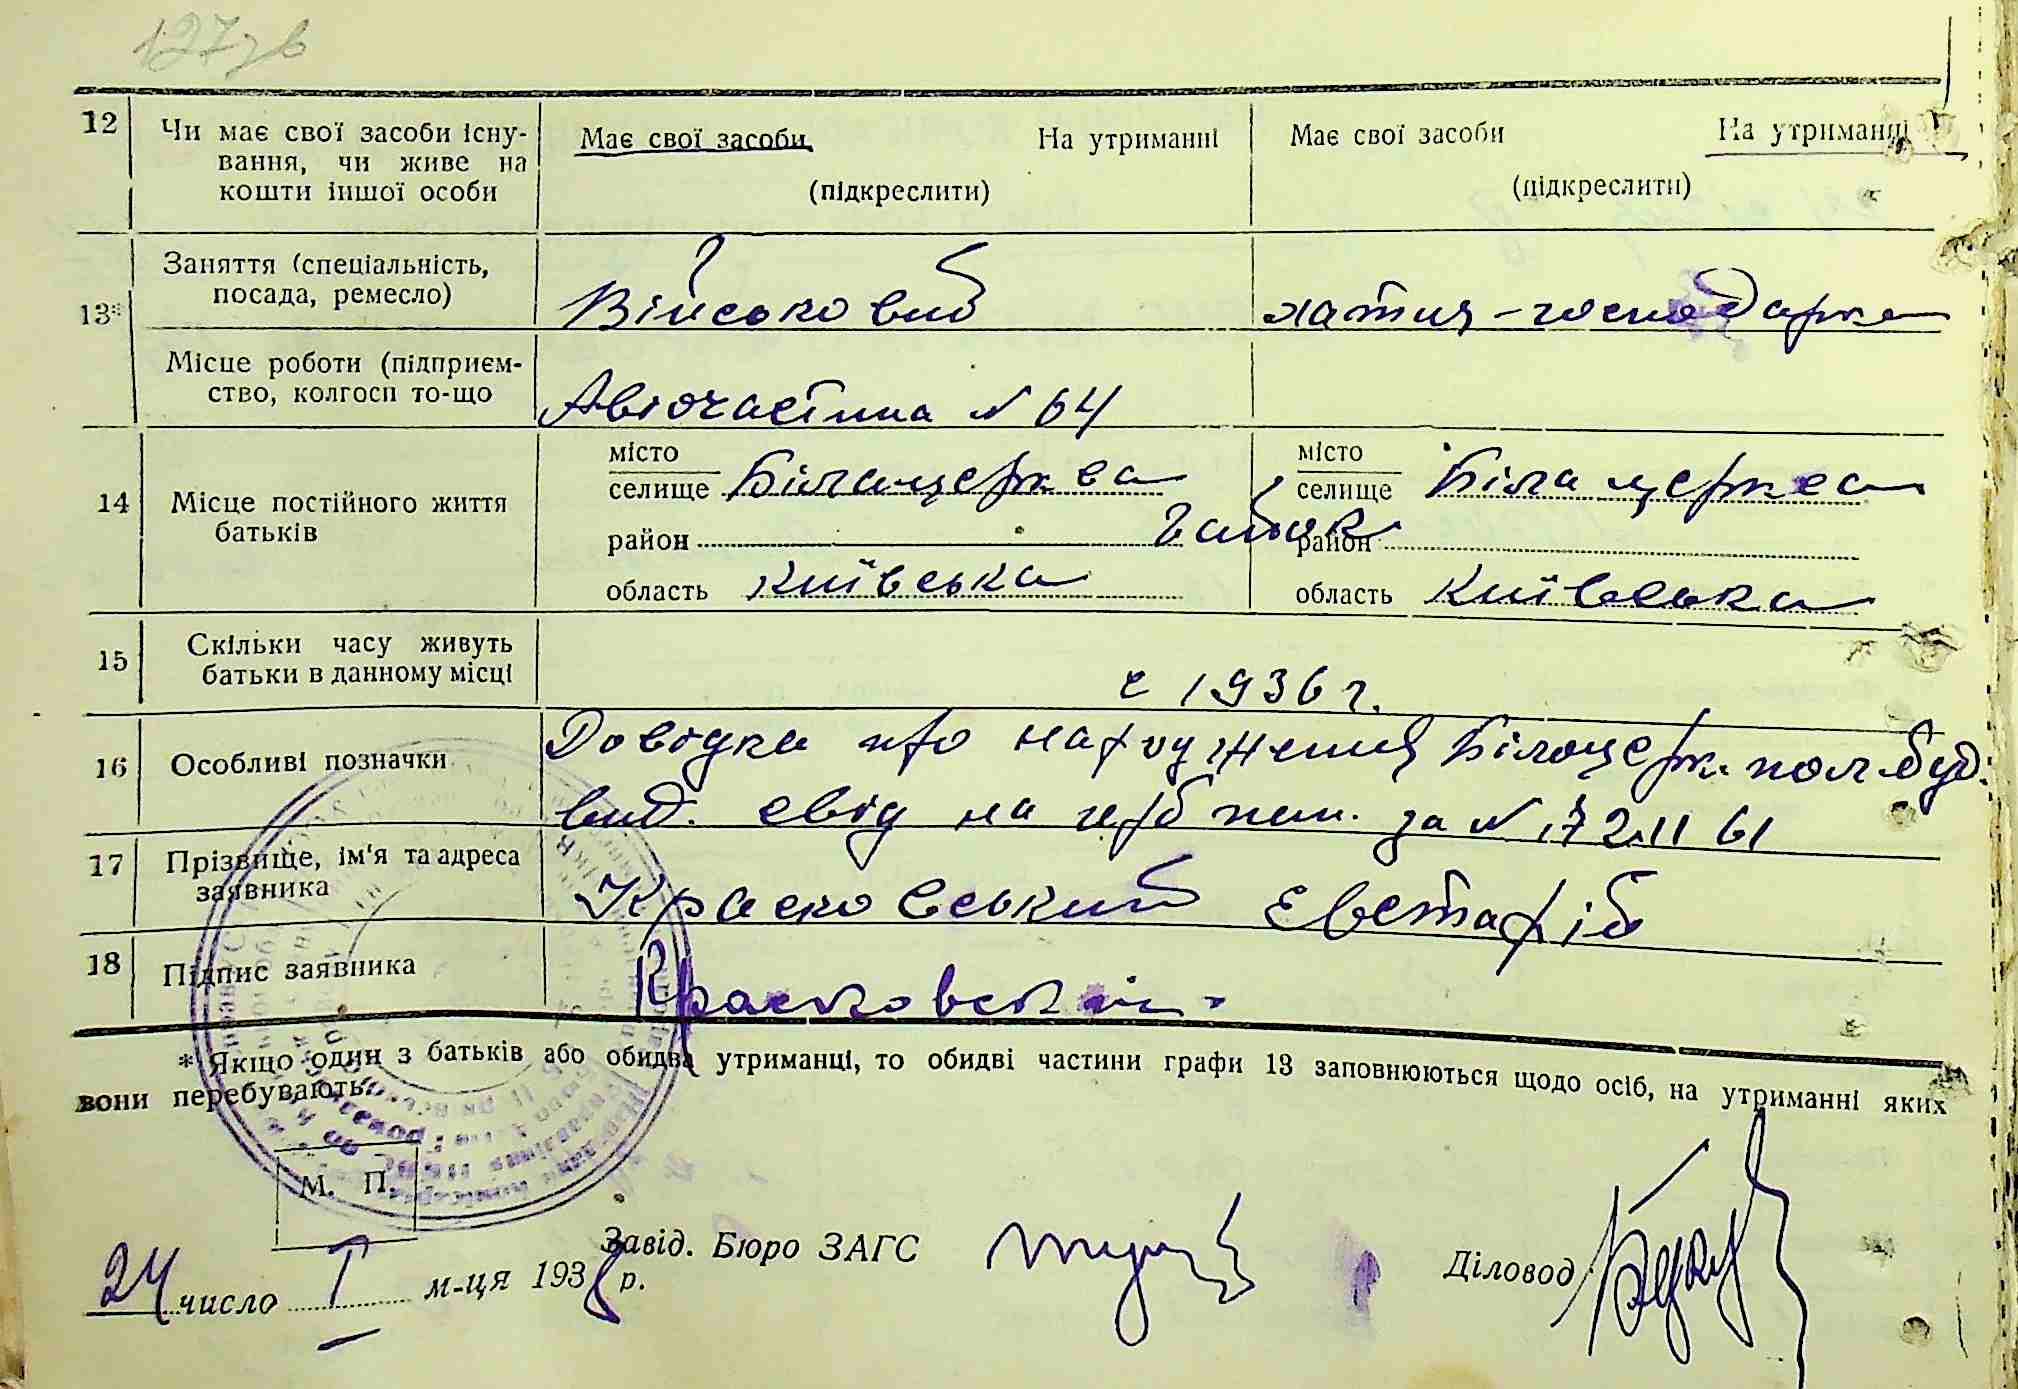 127зв
12 Чи має свої засоби існу-
вання, чи живе на
кошти іншої особи
Має свої засоби На утриманні
(підкреслити)
Має свої засоби На утриманні
(підкреслити)
13* Заняття (спеціальність,
посада, ремесло)
Військовий
хатня-господарка
Місце роботи (підприєм-
ство, колгосп то-що
Авіочастина N 64
14 Місце постійного життя
батьків
місто
селище Білацерква
район
область Київська
місто
селище Біла церква
район
область Київська
15 Скільки часу живуть
батьки в данному місці
с 1936 г.
16 Особливі позначки
Довідка про народження Білоцерк. пол. буд.
вид. свід на герб пап. за N
17 Прізвище, ім'я та адреса
заявника
Красковський Евстафій
18 Підпис заявника
Красковский
* Якщо один з батьків або обидва утриманці, то обидві частини графи 13 заповнюються щодо осіб, на утриманні яких
вони перебувають.
М. П.
24 число I м-ця 1938 р.
Завід. Бюро ЗАГС
Діловод